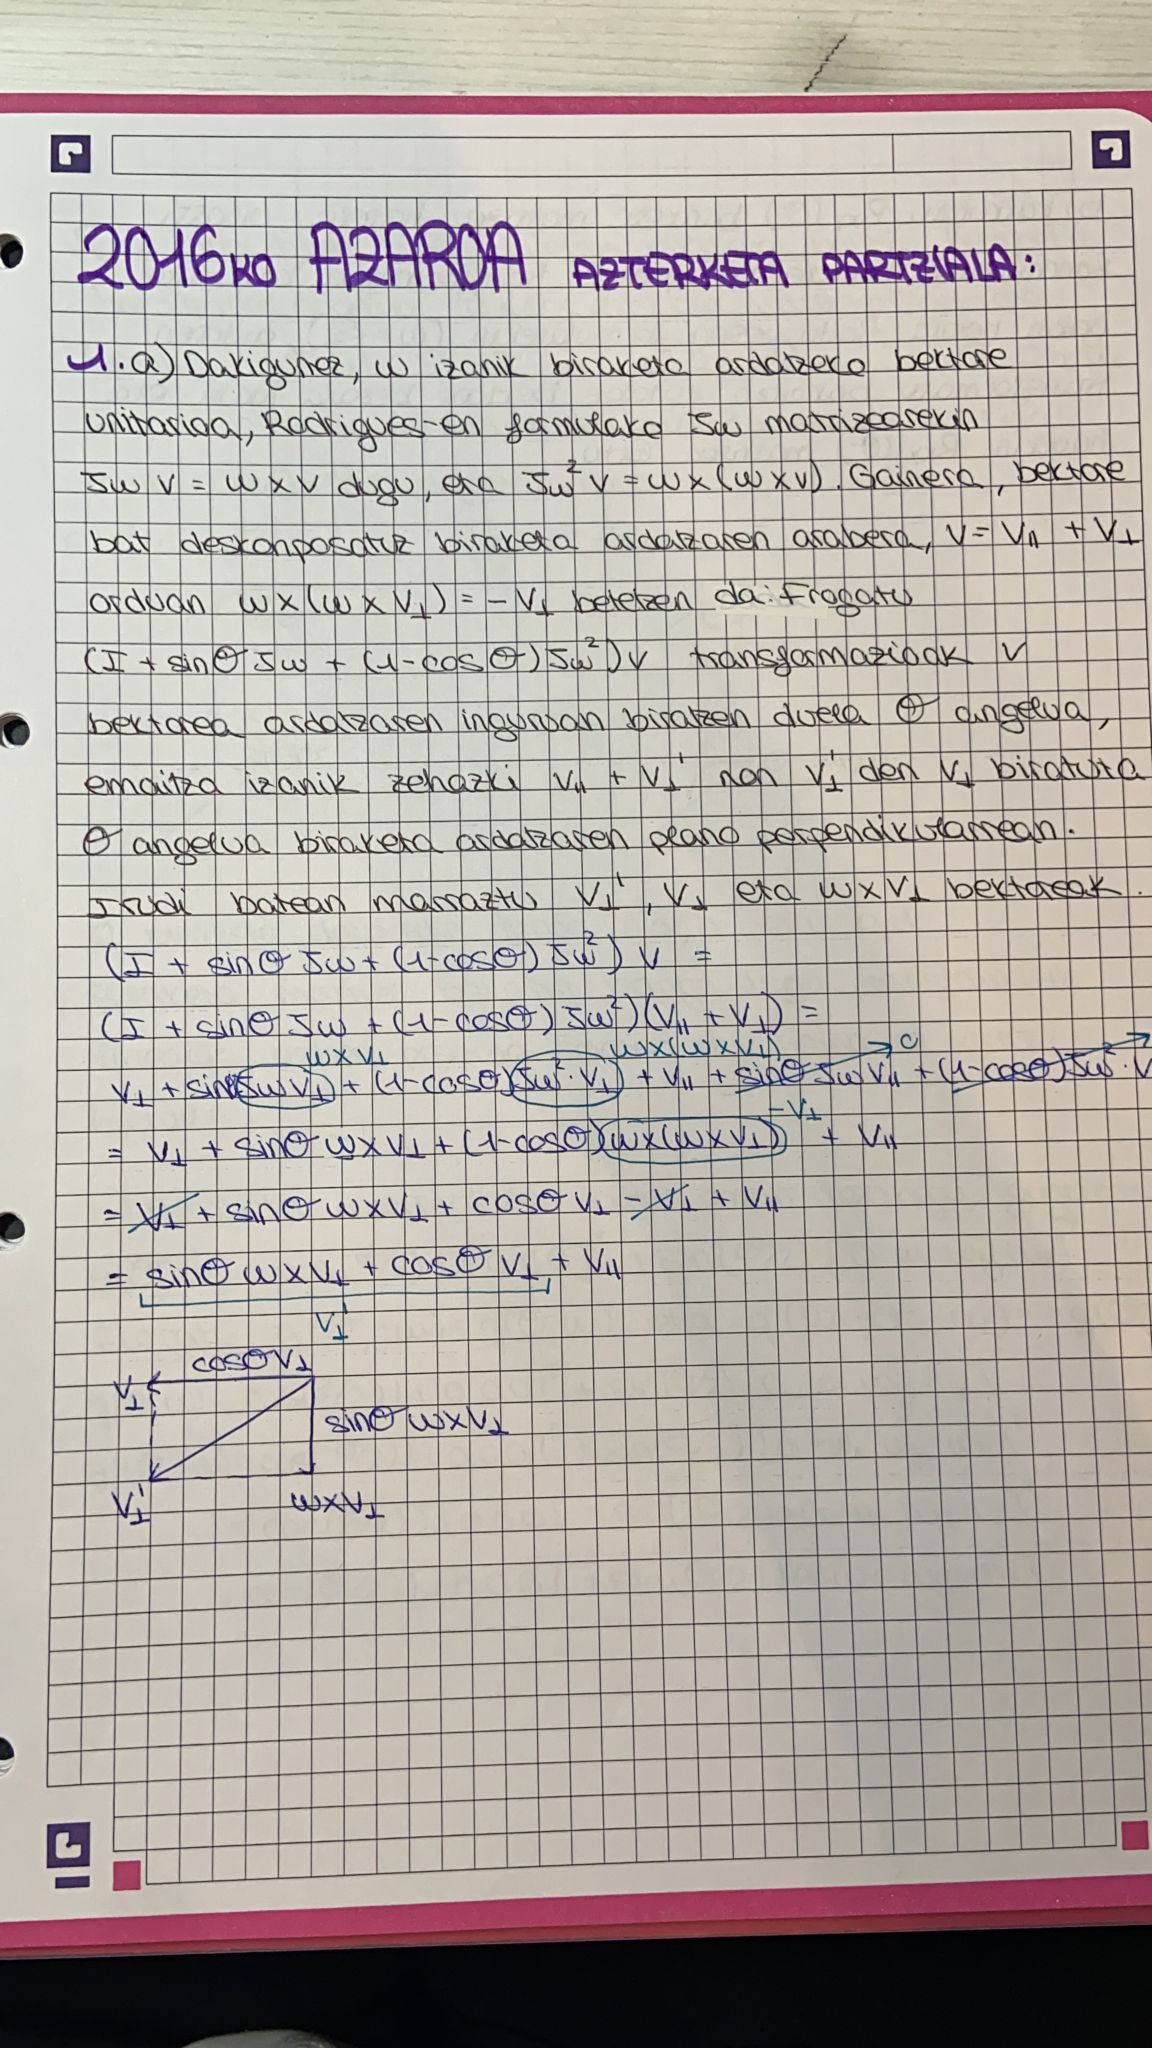 2016ko AZAROA AZTERKETA PARTZIALA:
1.a) Dakigunez, w izanik biraketa ardatzeko bektore
unitarioa, Rodrigues-en formulako Jw matrizearekin
Jw v = w×v dugu, eta Jw² v = w×(w×v). Gainera, bektore
bat deskonposatuz biraketa ardatzaren arabera, v = v∥ + v⊥
orduan w×(w×v⊥) = -v⊥ betetzen da. Frogatu
(I + sinθ Jw + (1-cosθ) Jw²)v transformazioak v
bektorea ardatzaren inguruan biratzen duela θ angelua,
emaitza izanik zehazki v∥ + v⊥' non v⊥' den v⊥ biratuta
θ angelua biraketa ardatzaren plano perpendikularrean.
Irudi batean marraztu v⊥', v⊥ eta w×v⊥ bektoreak.
(I + sinθ Jw + (1-cosθ) Jw²) v =
(I + sinθ Jw + (1-cosθ) Jw²)(v∥ + v⊥) =
w×v⊥ w×(w×v⊥) 0
v⊥ + sinθ Jw v⊥ + (1-cosθ) Jw²·v⊥ + v∥ + sinθ Jw v∥ + (1-cosθ) Jw²·v
-v⊥
= v⊥ + sinθ w×v⊥ + (1-cosθ)(w×(w×v⊥)) + v∥
= v⊥ + sinθ w×v⊥ + cosθ v⊥ - v⊥ + v∥
= sinθ w×v⊥ + cosθ v⊥ + v∥
v⊥'
cosθ v⊥
v⊥
sinθ w×v⊥
v⊥' w×v⊥